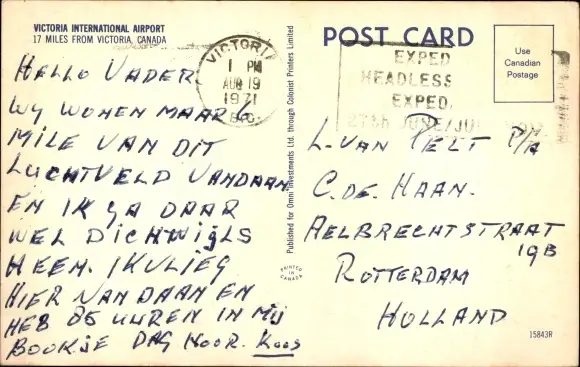 VICTORIA INTERNATIONAL AIRPORT
17 MILES FROM VICTORIA, CANADA
HELLO VADER
WY WONEN MAAR
MILE VAN DIT
LUCHTVELD VANDAAN
EN IK GA DAAR
WEL DICHWIJLS
HEEN. IK VLIEG
HIER VAN DAAN EN
HEB 85 UUREN IN MIJ
BOOKJE DAG HOOR. Koos
VICTORIA
1 PM
AUG 19
1971
B.C.
Published for Omni Investments Ltd. through Colonist Printers Limited
PRINTED IN CANADA
POST CARD
Use
Canadian
Postage
EXPED
HEADLESS
EXPED.
27TH JUNE/JU
L. VAN PELT P/A
C. DE. HAAN.
AELBRECHTSTRAAT
19B
ROTTERDAM
HOLLAND
15843R